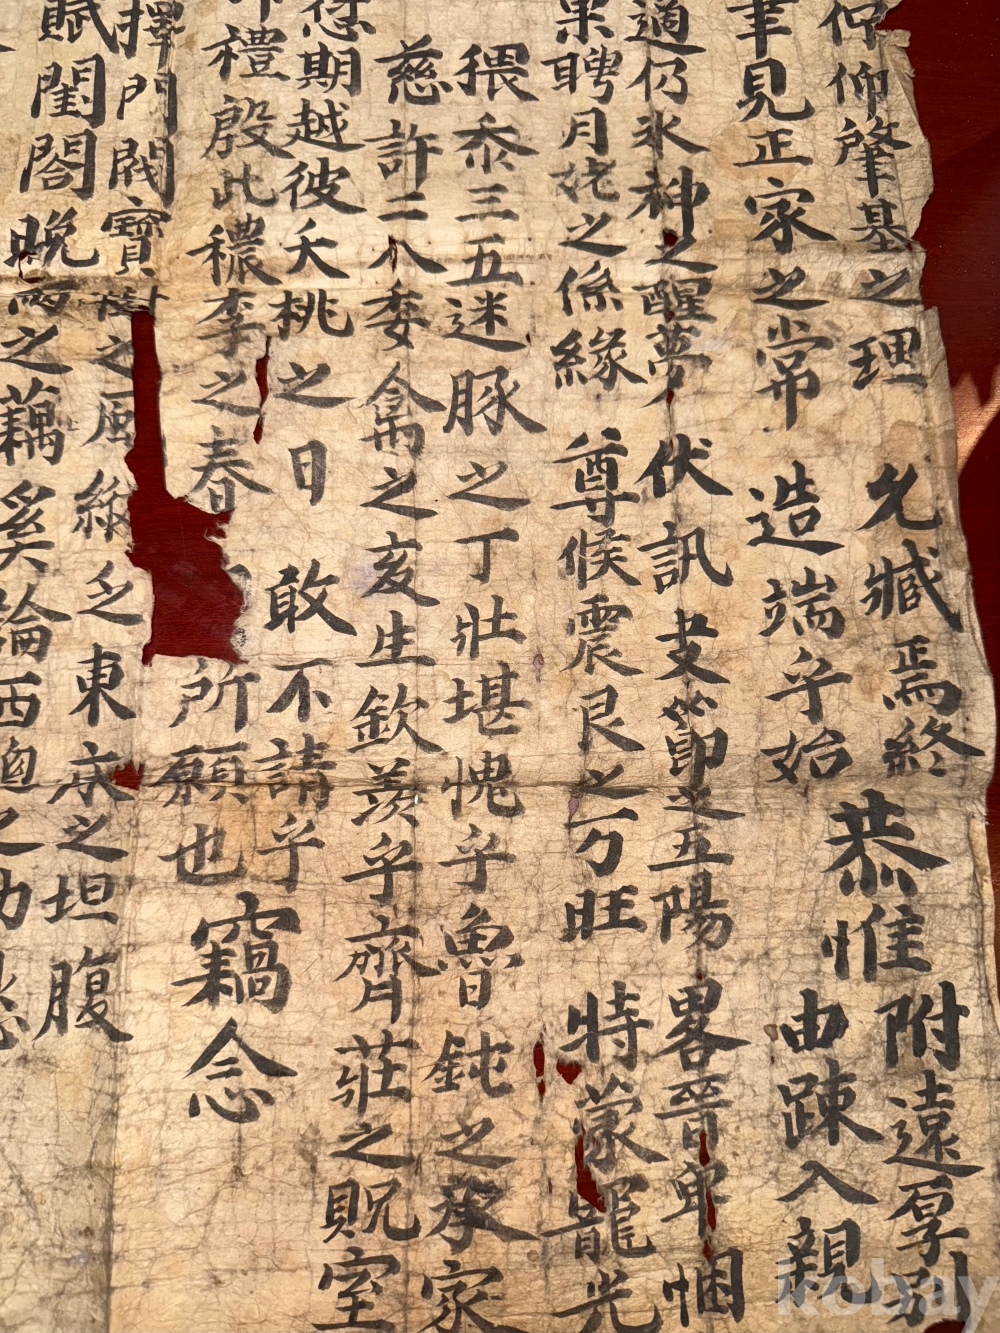 仰肇基之理 允臧焉終 恭惟 附遠厚別
聿見正家之常 造端乎始 由疎入親
適仍氷神之醒夢 伏訊 支節之五陽 畧晉卑悃
果聘月姥之係緣 尊候震艮之万旺 特蒙寵光
猥忝三五迷豚之丁壯堪愧乎魯鈍之承家
慈許二八委禽之亥生欽羨乎齊莊之貺室
期越彼夭桃之日 敢不請乎
禮殷此穠李之春 所願也 竊念
擇門閥寶樹之風綵乏東床之坦腹
賦閨閤晩之藕奚論西之